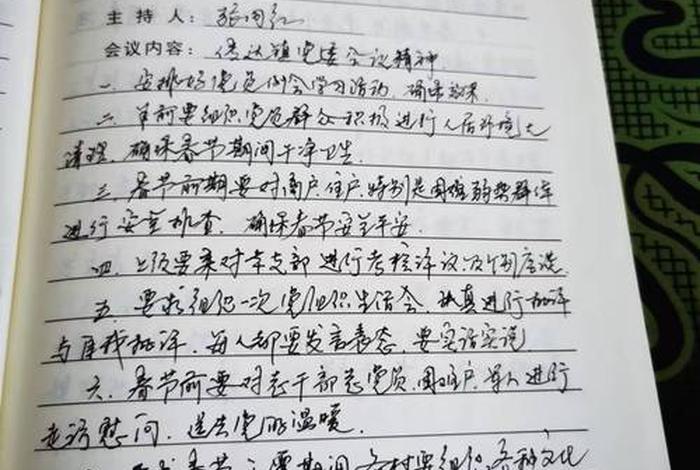 主持人：张同红
会议内容：传达镇党委会议精神
一、安排好党员例会学习活动，确保效果.
二、年前要组织党员群众积极进行人居环境大
清理，确保春节期间干净卫生.
三、春节前期要对商户、住户，特别是困难弱势群体
进行安全排查，确保春节安全平安.
四、上级要来对本支部进行考核评议及个别座谈.
五、要求组织一次党组织生活会，认真进行批评
与自我批评，每人都要发言表态，要实话实说
六、春节前要对老干部老党员，困难户，军人进行
走访慰问，送去党的温暖.
春节元宵期间，各村要组织各种文化